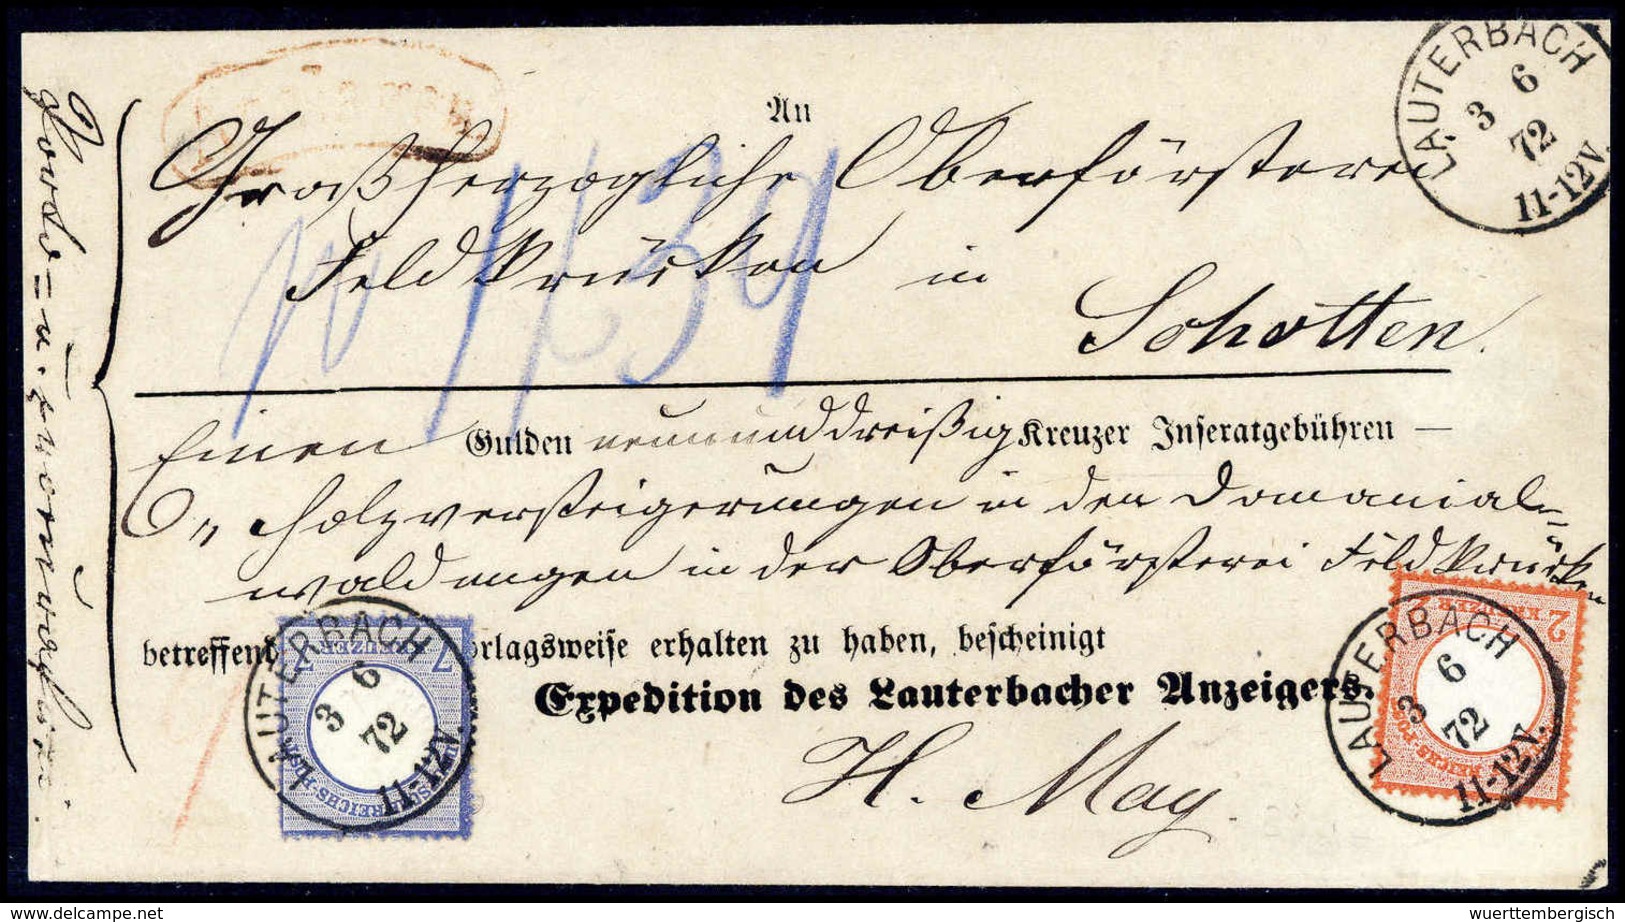 An
Großherzogliche Oberförsterei
Feldkrücken in
Schotten.
LAUTERBACH
3 6
72
11-12V.
1/39
Einen Gulden neununddreißig Kreuzer Inseratgebühren —
Holzversteigerungen in den Domanial=
waldungen in der Oberförsterei Feldkrücken
betreffend orlagsweise erhalten zu haben, bescheinigt
Expedition des Lauterbacher Anzeigers.
H. May.
LAUTERBACH
3 6
72
11-12V.
7 KREUZER 7
REICHS-POST
LAUTERBACH
3 6
72
11-12V.
2 KREUZER 2
REICHS-POST
wuerttembergisch